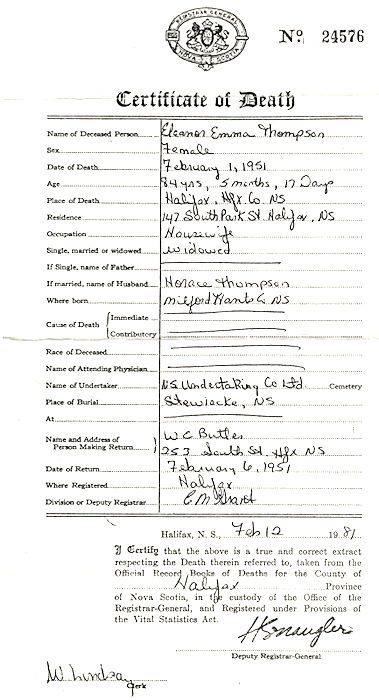 REGISTRAR GENERAL
NOVA SCOTIA
No. 24576
Certificate of Death
Name of Deceased Person Eleanor Emma Thompson
Sex Female
Date of Death February 1, 1951
Age 84 yrs, 5 months, 17 Days
Place of Death Halifax, Hfx. Co. NS
Residence 147 South Park St. Halifax, NS
Occupation Housewife
Single, married or widowed widowed
If Single, name of Father
If married, name of Husband Horace Thompson
Where born Milford Hants Co NS
Cause of Death { Immediate
Contributory
Race of Deceased
Name of Attending Physician
Name of Undertaker N.S. Undertaking Co Ltd. Cemetery
Place of Burial Stewiacke, NS
At
Name and Address of Person Making Return } W C Butler
253 South St. Hfx NS
Date of Return February 6, 1951
Where Registered Halifax
Division or Deputy Registrar C M
Halifax, N. S., Feb 12 1981
I Certify that the above is a true and correct extract
respecting the Death therein referred to, taken from the
Official Record Books of Deaths for the County of
Halifax Province
of Nova Scotia, in the custody of the Office of the
Registrar-General, and Registered under Provisions of
the Vital Statistics Act.
Deputy Registrar-General
W. Lindsay
Clerk